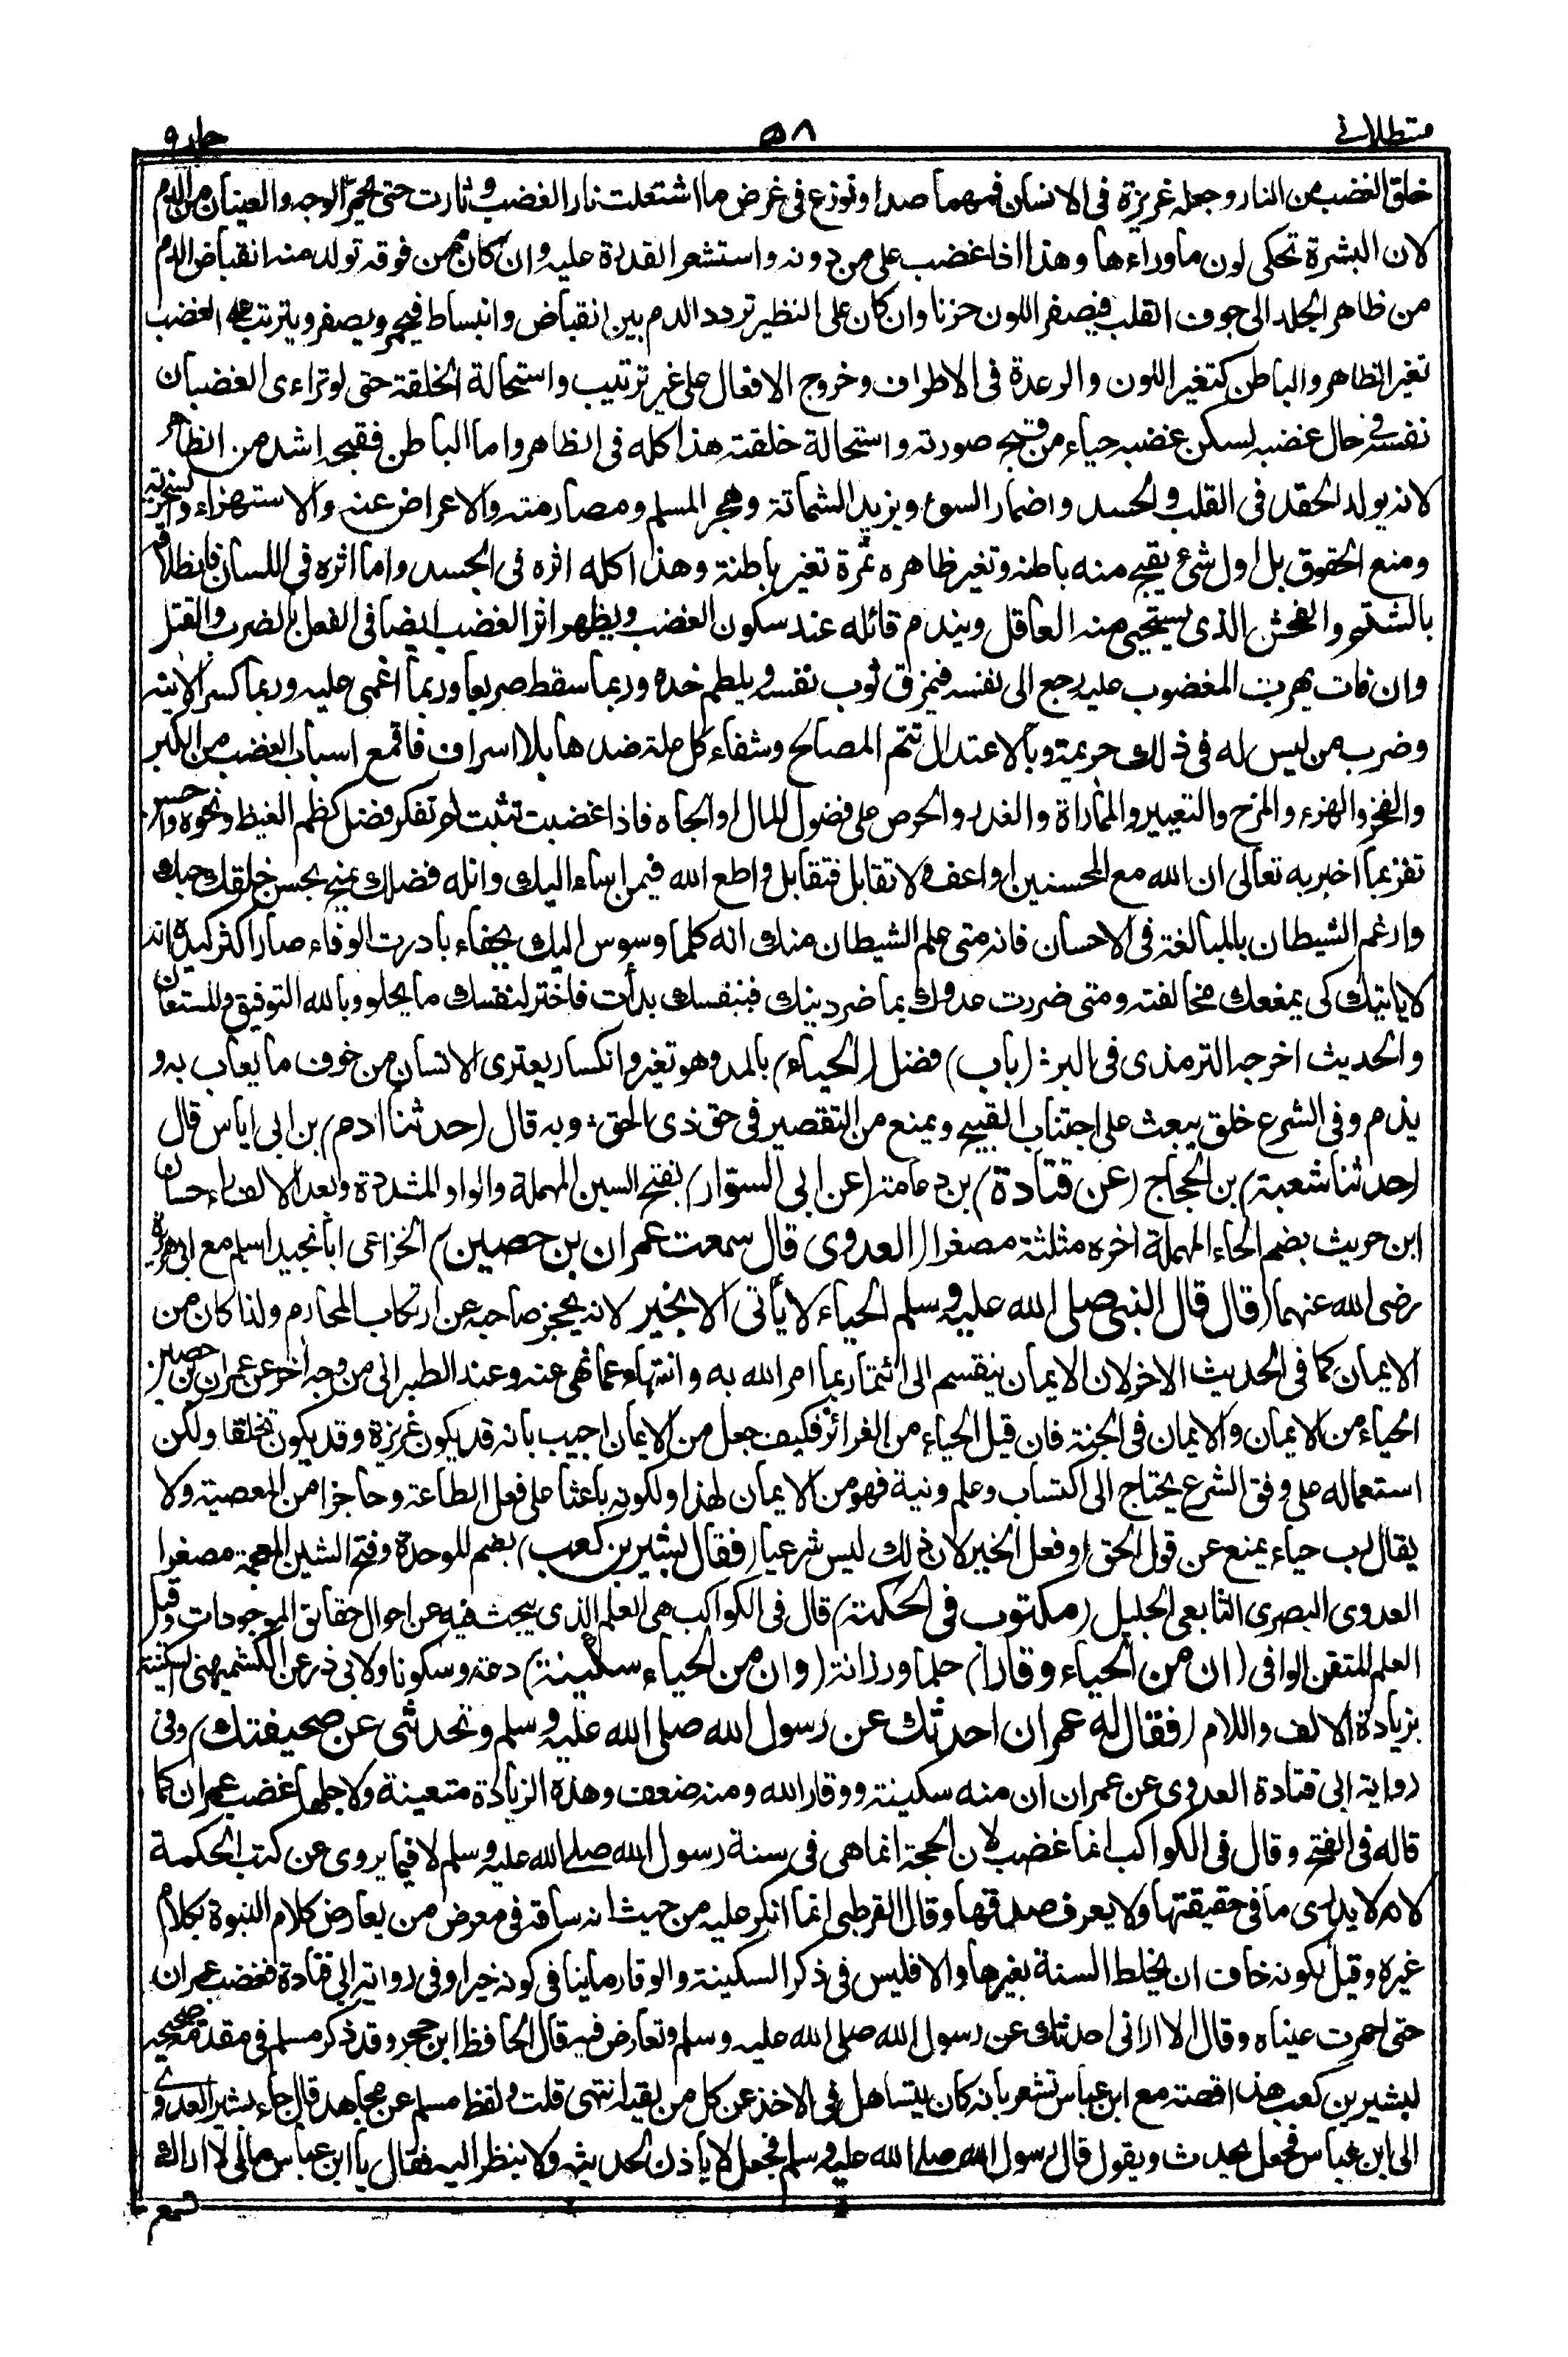 قسطلانی ٥٨ جلد ٩
خلق الغضب من النار وجعله غريزة فى الانسان فمهما صدا ونوزع فى غرض ما اشتعلت نار الغضب وثارت حتى يحمر الوجه والعينان من الدم
لان البشرة تحكى لون ما وراءها وهذا اذا غضب على من دونه واستشعر القدرة عليه وان كان ممن فوقه تولد منه انقباض الدم
من ظاهر الجلد الى جوف القلب فيصفر اللون حزنا وان كان على النظير تردد الدم بين انقباض وانبساط فيحمر ويصفر ويترتب على الغضب
تغير الظاهر والباطن كتغير اللون والرعدة فى الاطراف وخروج الافعال على غير ترتيب واستحالة الخلقة حتى لو تراءى الغضبان
نفسه فى حال غضبه لسكن غضبه حياء من قبح صورته واستحالة خلقته هذا كله فى الظاهر واما الباطن فقبحه اشد من الظاهر
لانه يولد الحقد فى القلب والحسد واضمار السوء ويزيد الشماتة وهجر المسلم ومصارمته والاعراض عنه والاستهزاء والسخرية
ومنع الحقوق بل اول شئ يقبح منه باطنه وتغير ظاهره ثمرة تغير باطنة وهذا كله اثره فى الجسد واما اثره فى اللسان فانطلاقه
بالشتم والفحش الذى يستحيى منه العاقل ويندم قائله عند سكون الغضب ويظهر اثر الغضب ايضا فى الفعل بالضرب والقتل
وان فات بهرب المغضوب عليه رجع الى نفسه فيمزق ثوب نفسه ويلطم خده وربما سقط صريعا وربما اغمى عليه وربما كسر الانية
وضرب من ليس له فى ذلك جريمة وبالاعتدال تتم المصالح وشفاء كل علة ضدها بلا اسراف فاقمع اسباب الغضب من الكبر
والفخر والهزء والمزح والتعيير والمماراة والغدر والحرص على فضول المال والجاه فاذا غضبت تثبت ثم تفكر فضل كظم الغيظ ونحوه واحسن
تفز بما اخبر به تعالى ان الله مع المحسنين واعف ولا تقابل فتقابل واطع الله فيمن اساء اليك وانله فضلك يمنح بحسن خلقك حبك
وارغم الشيطان بالمبالغة فى الاحسان فانه متى علم الشيطان منك انه كلما وسوس اليك بجفاء بادرت الوفاء صار اكثر كيده انه
لا ياتيك كى يمنعك مخالفته ومتى ضررت عدوك بما ضر دينك فبنفسك بدأت فاختر لنفسك ما يحلو وبالله التوفيق والمستعان
والحديث اخرجه الترمذى فى البر : (باب) فضل (الحياء) بالمد وهو تغير وانكسار يعترى الانسان من خوف ما يعاب به و
يذم وفى الشرع خلق يبعث على اجتناب القبيح ويمنع من التقصير فى حق ذى الحق : وبه قال (حدثنا ادم) بن ابى اياس قال
(حدثنا شعبة) بن الحجاج (عن قتادة) بن دعامة (عن ابى السوّار) بفتح السين المهملة والواو المشددة وبعد الالف راء حسان
ابن حريث بضم الحاء المهملة اخره مثلثة مصغرا (العدوى قال سمعت عمران بن حصين) الخزاعى ابا نجيد اسلم مع ابى هريرة
رضى الله عنهما (قال قال النبى صلى الله عليه وسلم الحياء لا يأتى الا بخير لانه يحجز صاحبه عن ارتكاب المحارم ولذا كان من
الايمان كما فى الحديث الاخر لان الايمان ينقسم الى ائتمار بما امر الله به وانتهاء عما نهى عنه وعند الطبرانى من وجه اخر عن عمران بن حصين
الحياء من الايمان والايمان فى الجنة فان قيل الحياء من الغرائز فكيف جعل من الايمان اجيب بانه قد يكون غريزة وقد يكون تخلقا ولكن
استعماله على وفق الشرع يحتاج الى اكتساب وعلم ونية فهو من الايمان لهذا ولكونه باعثا على فعل الطاعة وحاجزا من المعصية ولا
يقال رب حياء يمنع عن قول الحق او فعل الخير لان ذلك ليس شرعيا (فقال بشير بن كعب) بضم الموحدة وفتح الشين المعجمة مصغرا
العدوى البصرى التابعى الجليل (مكتوب فى الحكمة) قال فى الكواكب هى العلم الذى يبحث فيه عن احوال حقائق الموجودات وقيل
العلم المتقن الوافى (ان من الحياء وقارا) حلما ورزانة (وان من الحياء سكينة) دعة وسكونا ولابى ذر عن الكشميهنى السكينة
بزيادة الالف واللام (فقال له عمران احدثك عن رسول الله صلى الله عليه وسلم وتحدثنى عن صحيفتك) وفى
رواية ابى قتادة العدوى عن عمران ان منه سكينة ووقار الله ومنه ضعف وهذه الزيادة متعينة ولاجلها غضب عمران كما
قاله فى الفتح وقال فى الكواكب انما غضب لان الحجة انما هى فى سنة رسول الله صلى الله عليه وسلم لا فيما يروى عن كتب الحكمة
لانه لا يدرى ما فى حقيقتها ولا يعرف صدقها وقال القرطبى انما انكر عليه من حيث انه ساقه فى معرض من يعارض كلام النبوة بكلام
غيره وقيل لكونه خاف ان يخلط السنة بغيرها والا فليس فى ذكر السكينة والوقار ما ينافى كونه خيرا وفى رواية ابى قتادة فغضب عمران
حتى احمرت عيناه وقال الا ارانى احدثك عن رسول الله صلى الله عليه وسلم وتعارض فيه قال الحافظ ابن حجر وقد ذكر مسلم فى مقدمة صحيحه
لبشير بن كعب هذا قصة مع ابن عباس تشعر بانه كان يتساهل فى الاخذ عن كل من لقيه انتهى قلت ولفظ مسلم عن مجاهد قال جاء بشير العدوى
الى ابن عباس فجعل يحدث ويقول قال رسول الله صلى الله عليه وسلم فجعل لا يأذن لحديثه ولا ينظر اليه فقال يا ابن عباس مالى لا اراك
تسمع